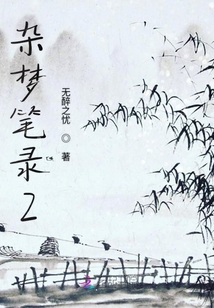 杂梦笔录2
无醉之忧◎著